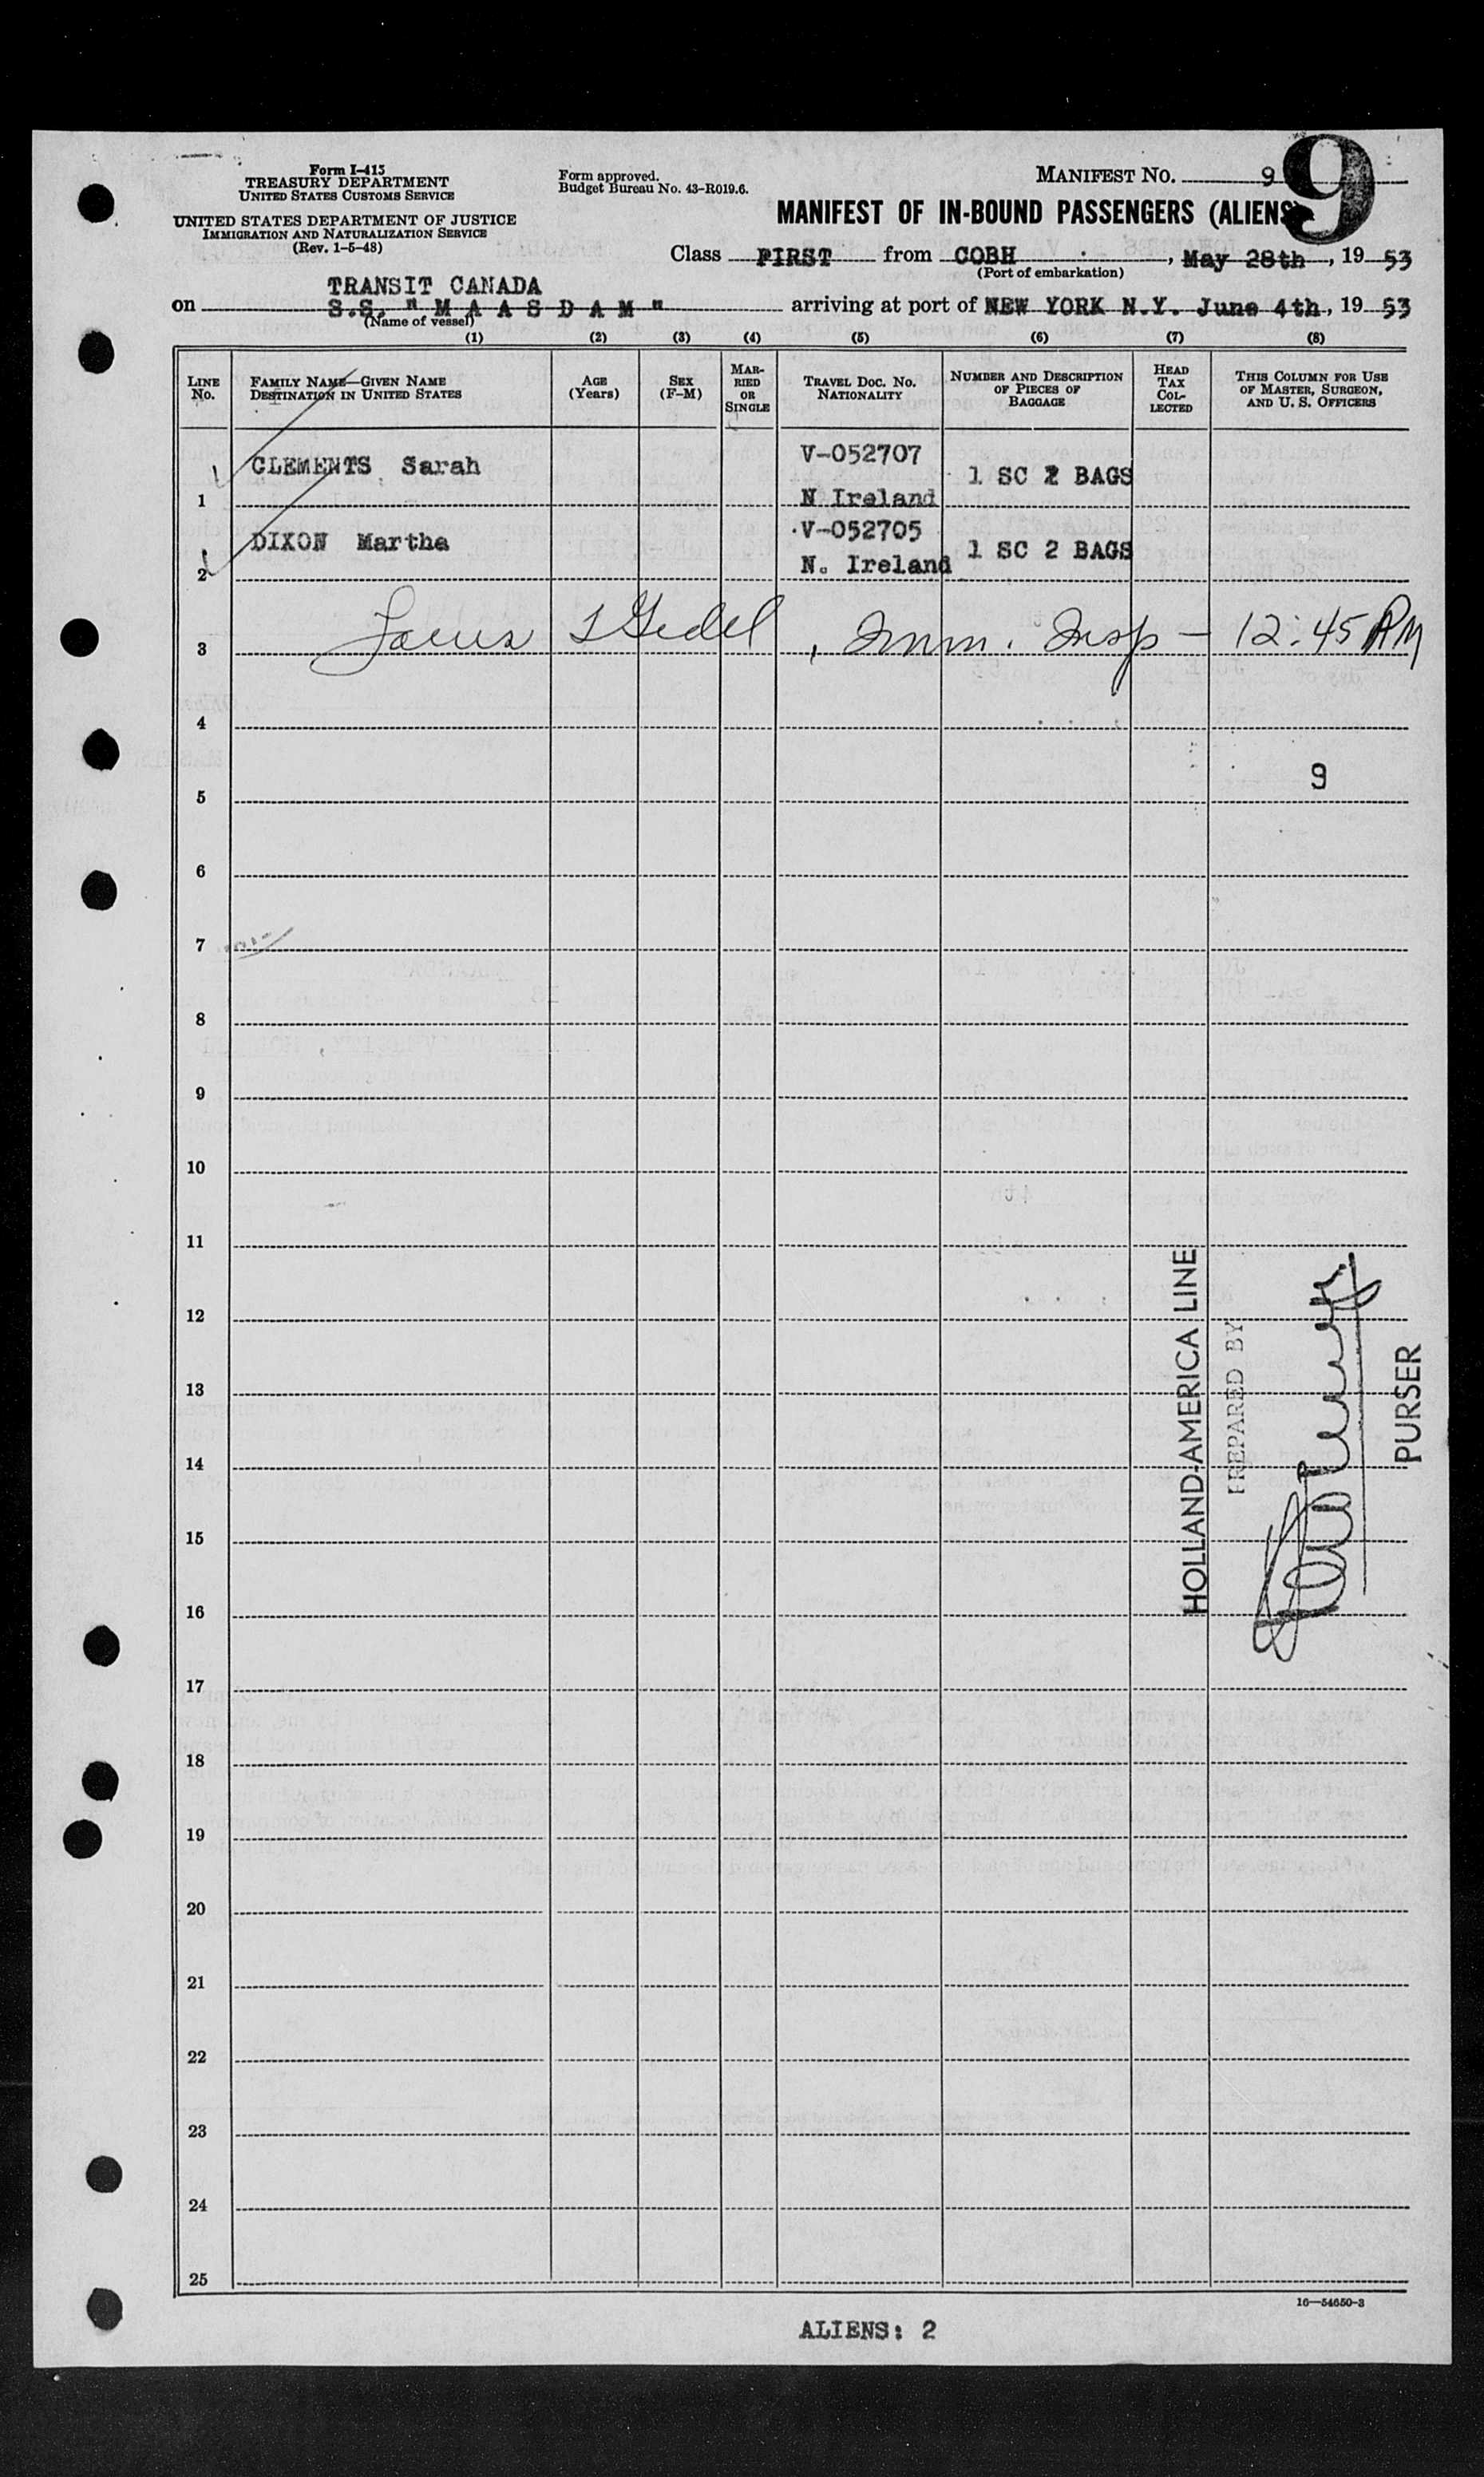 Form I-415
TREASURY DEPARTMENT
UNITED STATES CUSTOMS SERVICE
UNITED STATES DEPARTMENT OF JUSTICE
IMMIGRATION AND NATURALIZATION SERVICE
(Rev. 1-5-48)
Form approved.
Budget Bureau No. 43-R019.6.
MANIFEST NO. 9
9
MANIFEST OF IN-BOUND PASSENGERS (ALIENS)
Class FIRST from COBH, May 28th, 19 53
(Port of embarkation)
TRANSIT CANADA
on S.S. "M A A S D A M" arriving at port of NEW YORK N.Y. June 4th, 19 53
(Name of vessel)
(1) (2) (3) (4) (5) (6) (7) (8)
LINE No.
FAMILY NAME—GIVEN NAME
DESTINATION IN UNITED STATES
AGE
(Years)
SEX
(F-M)
MAR-
RIED
OR
SINGLE
TRAVEL DOC. NO.
NATIONALITY
NUMBER AND DESCRIPTION
OF PIECES OF
BAGGAGE
HEAD
TAX
COL-
LECTED
THIS COLUMN FOR USE
OF MASTER, SURGEON,
AND U. S. OFFICERS
1 CLEMENTS Sarah V-052707 N Ireland 1 SC 2 BAGS
2 DIXON Martha V-052705 N. Ireland 1 SC 2 BAGS
3 Louis, Imm. Insp - 12:45 PM
4
5 9
6
7
8
9
10
11
12
13
14
15
16
17
18
19
20
21
22
23
24
25
HOLLAND-AMERICA LINE
PREPARED BY
PURSER
16—54650-3
ALIENS: 2